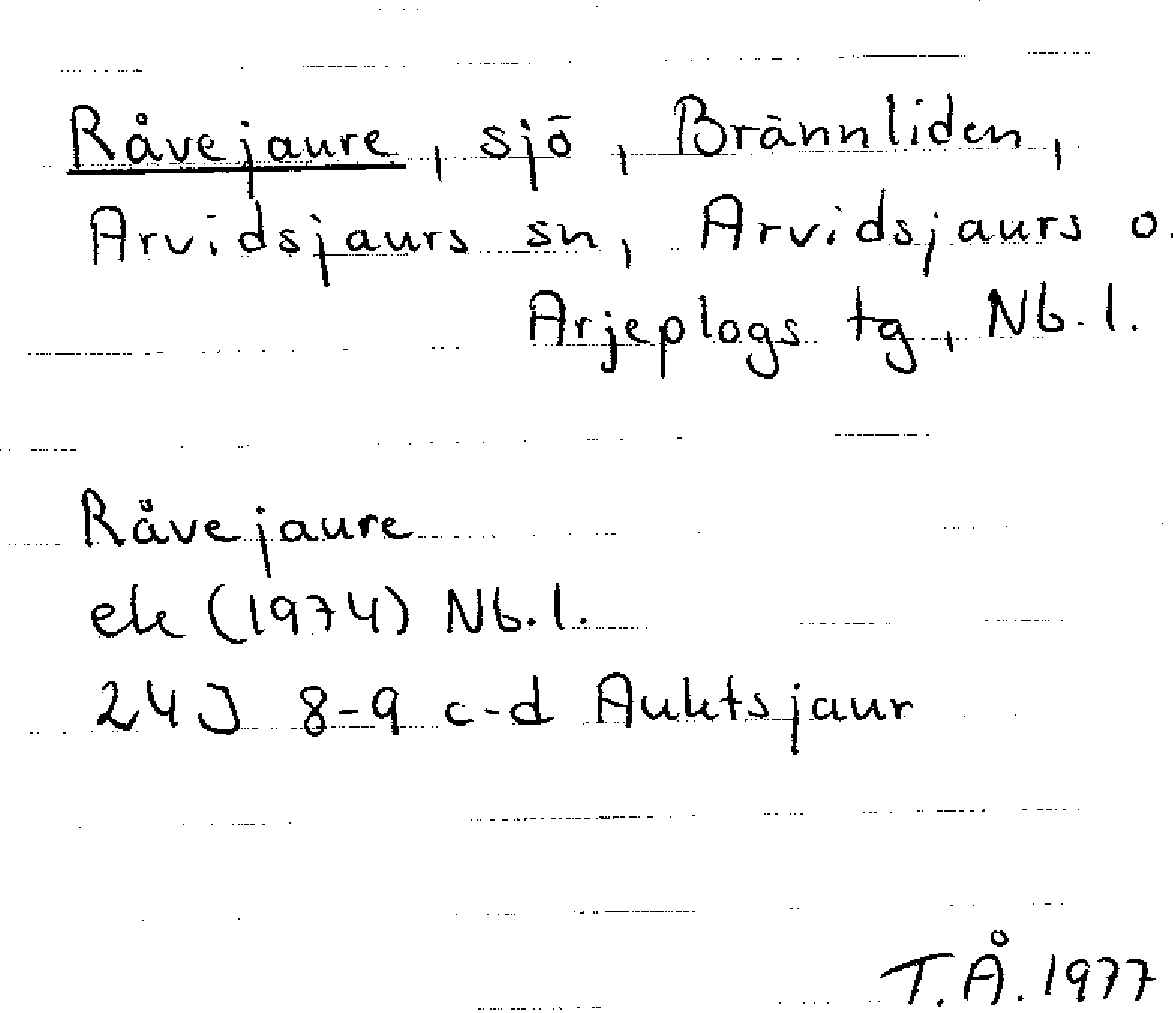 Råvejaure, sjö, Brännliden,
Arvidsjaurs sn, Arvidsjaurs o.
Arjeplogs tg, Nb.l.
Råvejaure
ek (1974) Nb.l.
24J 8-9 c-d Auktsjaur
T.Å. 1977